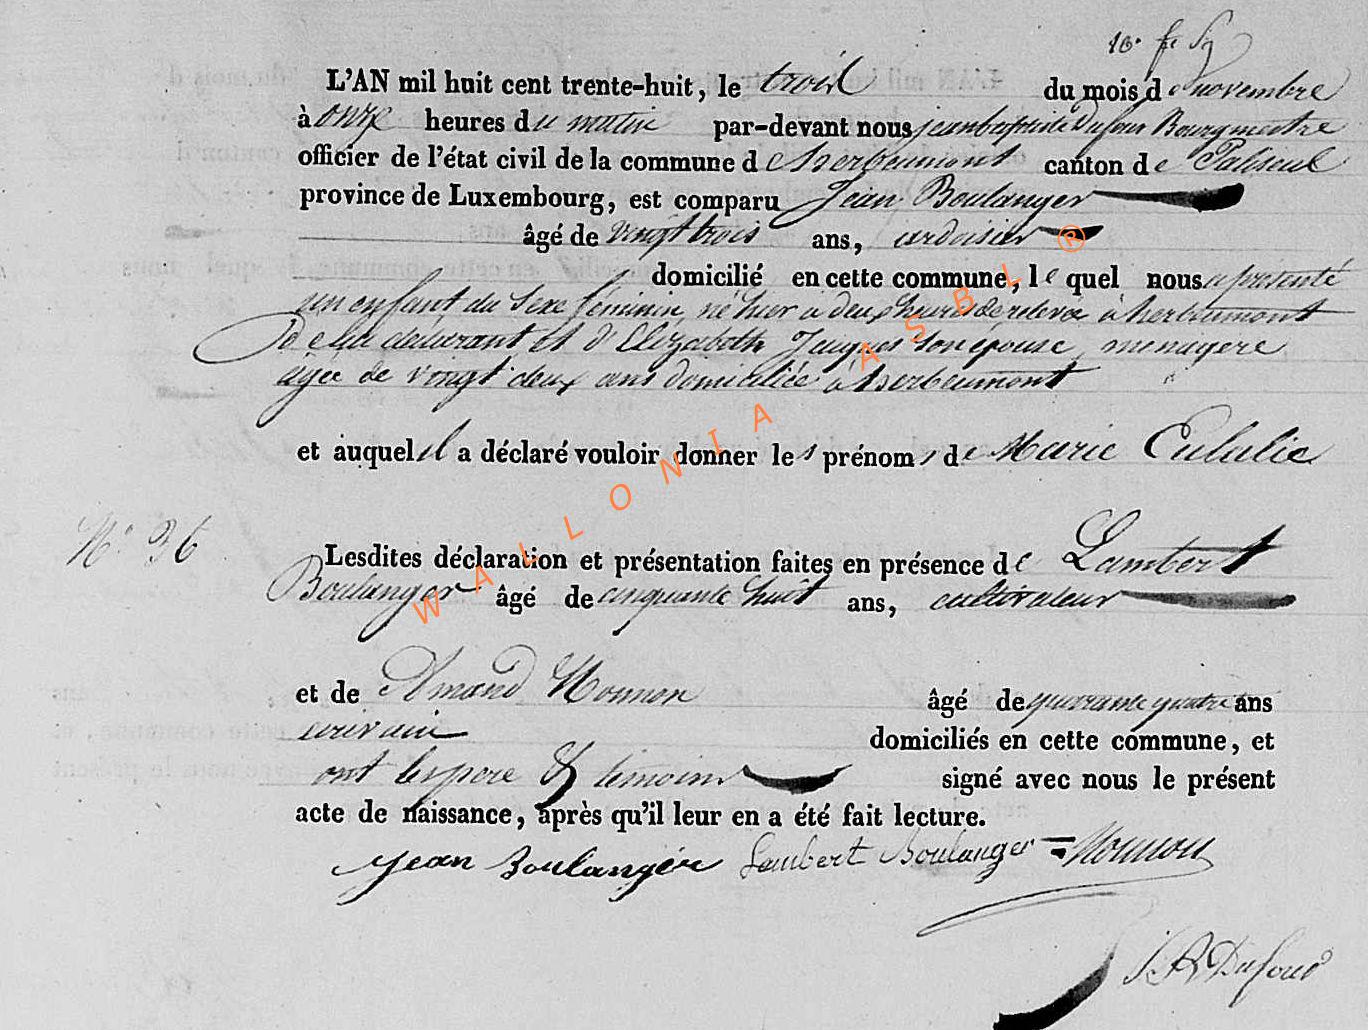 L'AN mil huit cent trente-huit, le trois du mois de novembre
à onze heures du matin par-devant nous jean baptiste Dufour Bourgmestre
officier de l'état civil de la commune d'herbeumont canton de Paliseul
province de Luxembourg, est comparu Jean Boulanger
âgé de vingt trois ans, ardoisier
domicilié en cette commune, le quel nous a présenté
un enfant du sexe feminin né hier à deux heures de relevée à herbeumont
De lui déclarant et d'Elizabeth Jacques son épouse, menagere
agée de vingt deux ans domiciliée à herbeumont
et auquel il a déclaré vouloir donner les prénoms de Marie Eulalie
N° 36
Lesdites déclaration et présentation faites en présence de Lambert
Boulanger âgé de cinquante huit ans, cultivateur
et de Amand Monnon âgé de quarante quatre ans
ecrivain domiciliés en cette commune, et
ont les pere & temoins signé avec nous le présent
acte de naissance, après qu'il leur en a été fait lecture.
Jean Boulanger Lambert Boulanger Monnon
J B Dufour
WALLONIA ASBL ®